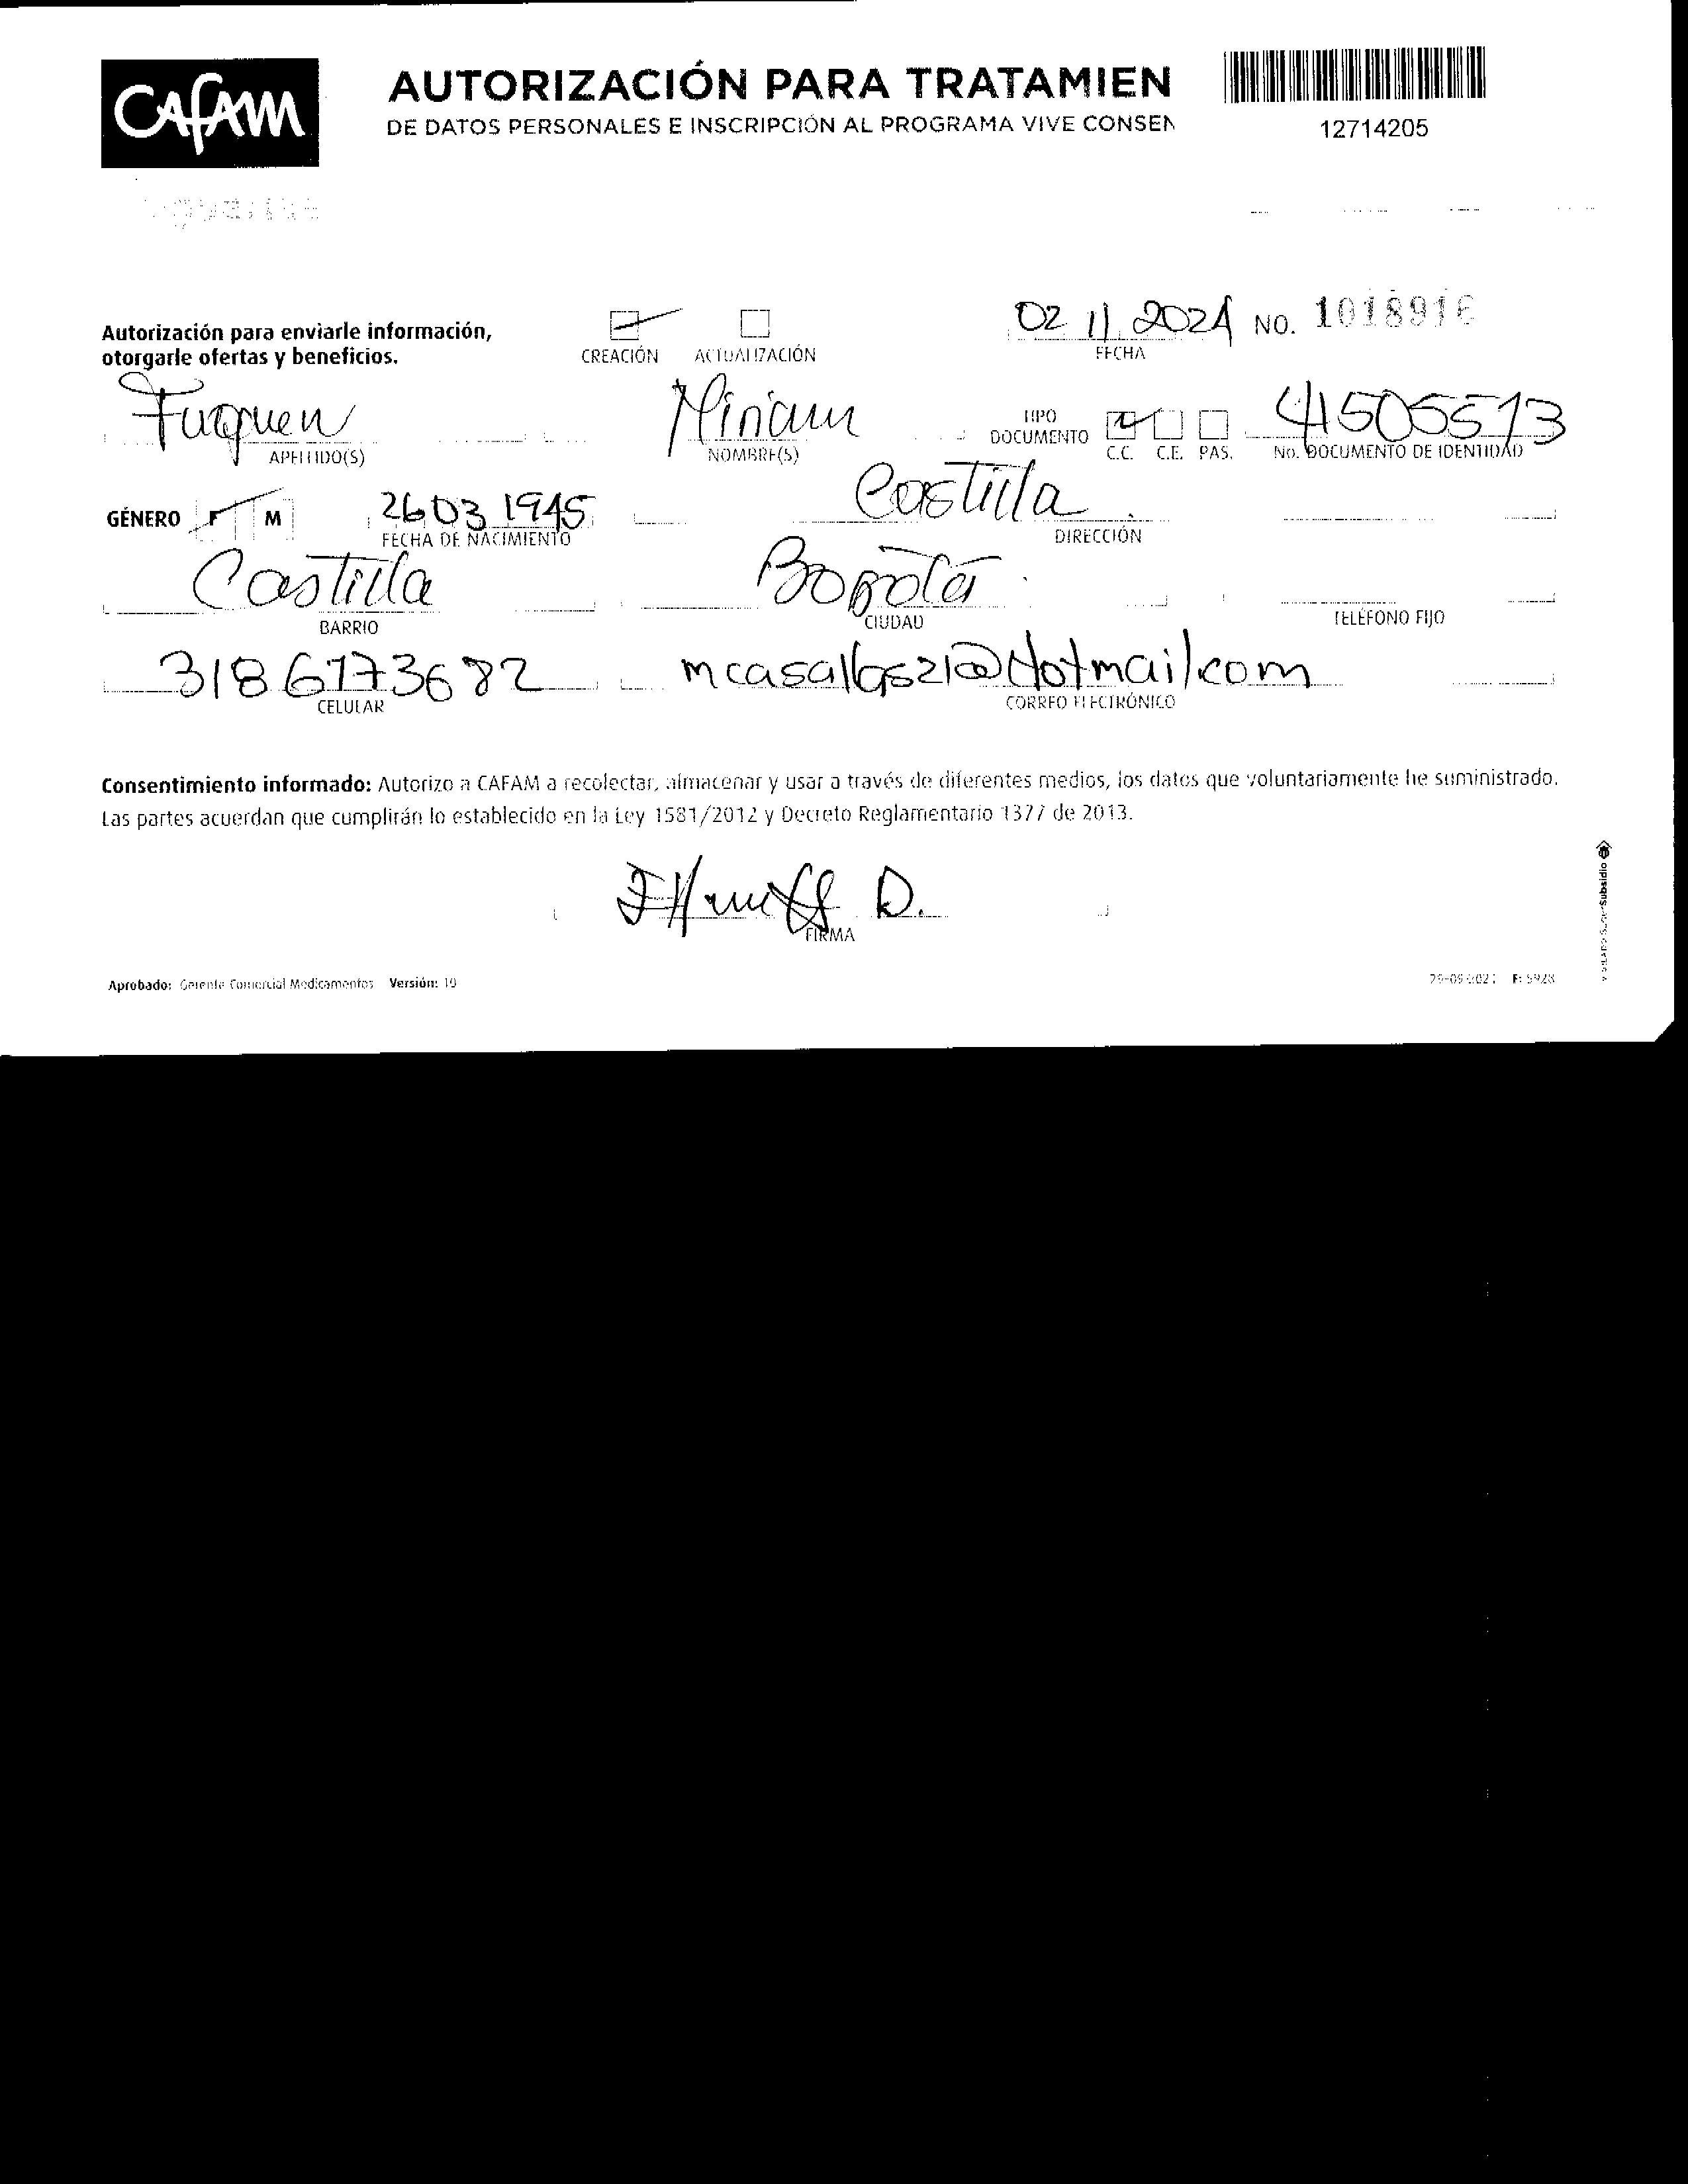 CAFAM
AUTORIZACIÓN PARA TRATAMIEN
DE DATOS PERSONALES E INSCRIPCIÓN AL PROGRAMA VIVE CONSEN
12714205
Autorización para enviarle información,
otorgarle ofertas y beneficios.
CREACIÓN ACTUALIZACIÓN
02 11 2024 NO. 1018916
FECHA
Fuquen Miriam TIPO DOCUMENTO 41505513
APELLIDO(S) NOMBRE(S) C.C. C.E. PAS. No. DOCUMENTO DE IDENTIDAD
GÉNERO F M 26 03 1945 Castilla
FECHA DE NACIMIENTO DIRECCIÓN
Castilla Bogotá
BARRIO CIUDAD TELÉFONO FIJO
318 6173682 mcasallas21@Hotmail.com
CELULAR CORREO ELECTRÓNICO
Consentimiento informado: Autorizo a CAFAM a recolectar, almacenar y usar a través de diferentes medios, los datos que voluntariamente he suministrado.
Las partes acuerdan que cumplirán lo establecido en la Ley 1581/2012 y Decreto Reglamentario 1377 de 2013.
FIRMA
Aprobado: Gerente Comercial Medicamentos Versión: 10
F: 5928
VIGILADO SuperSubsidio